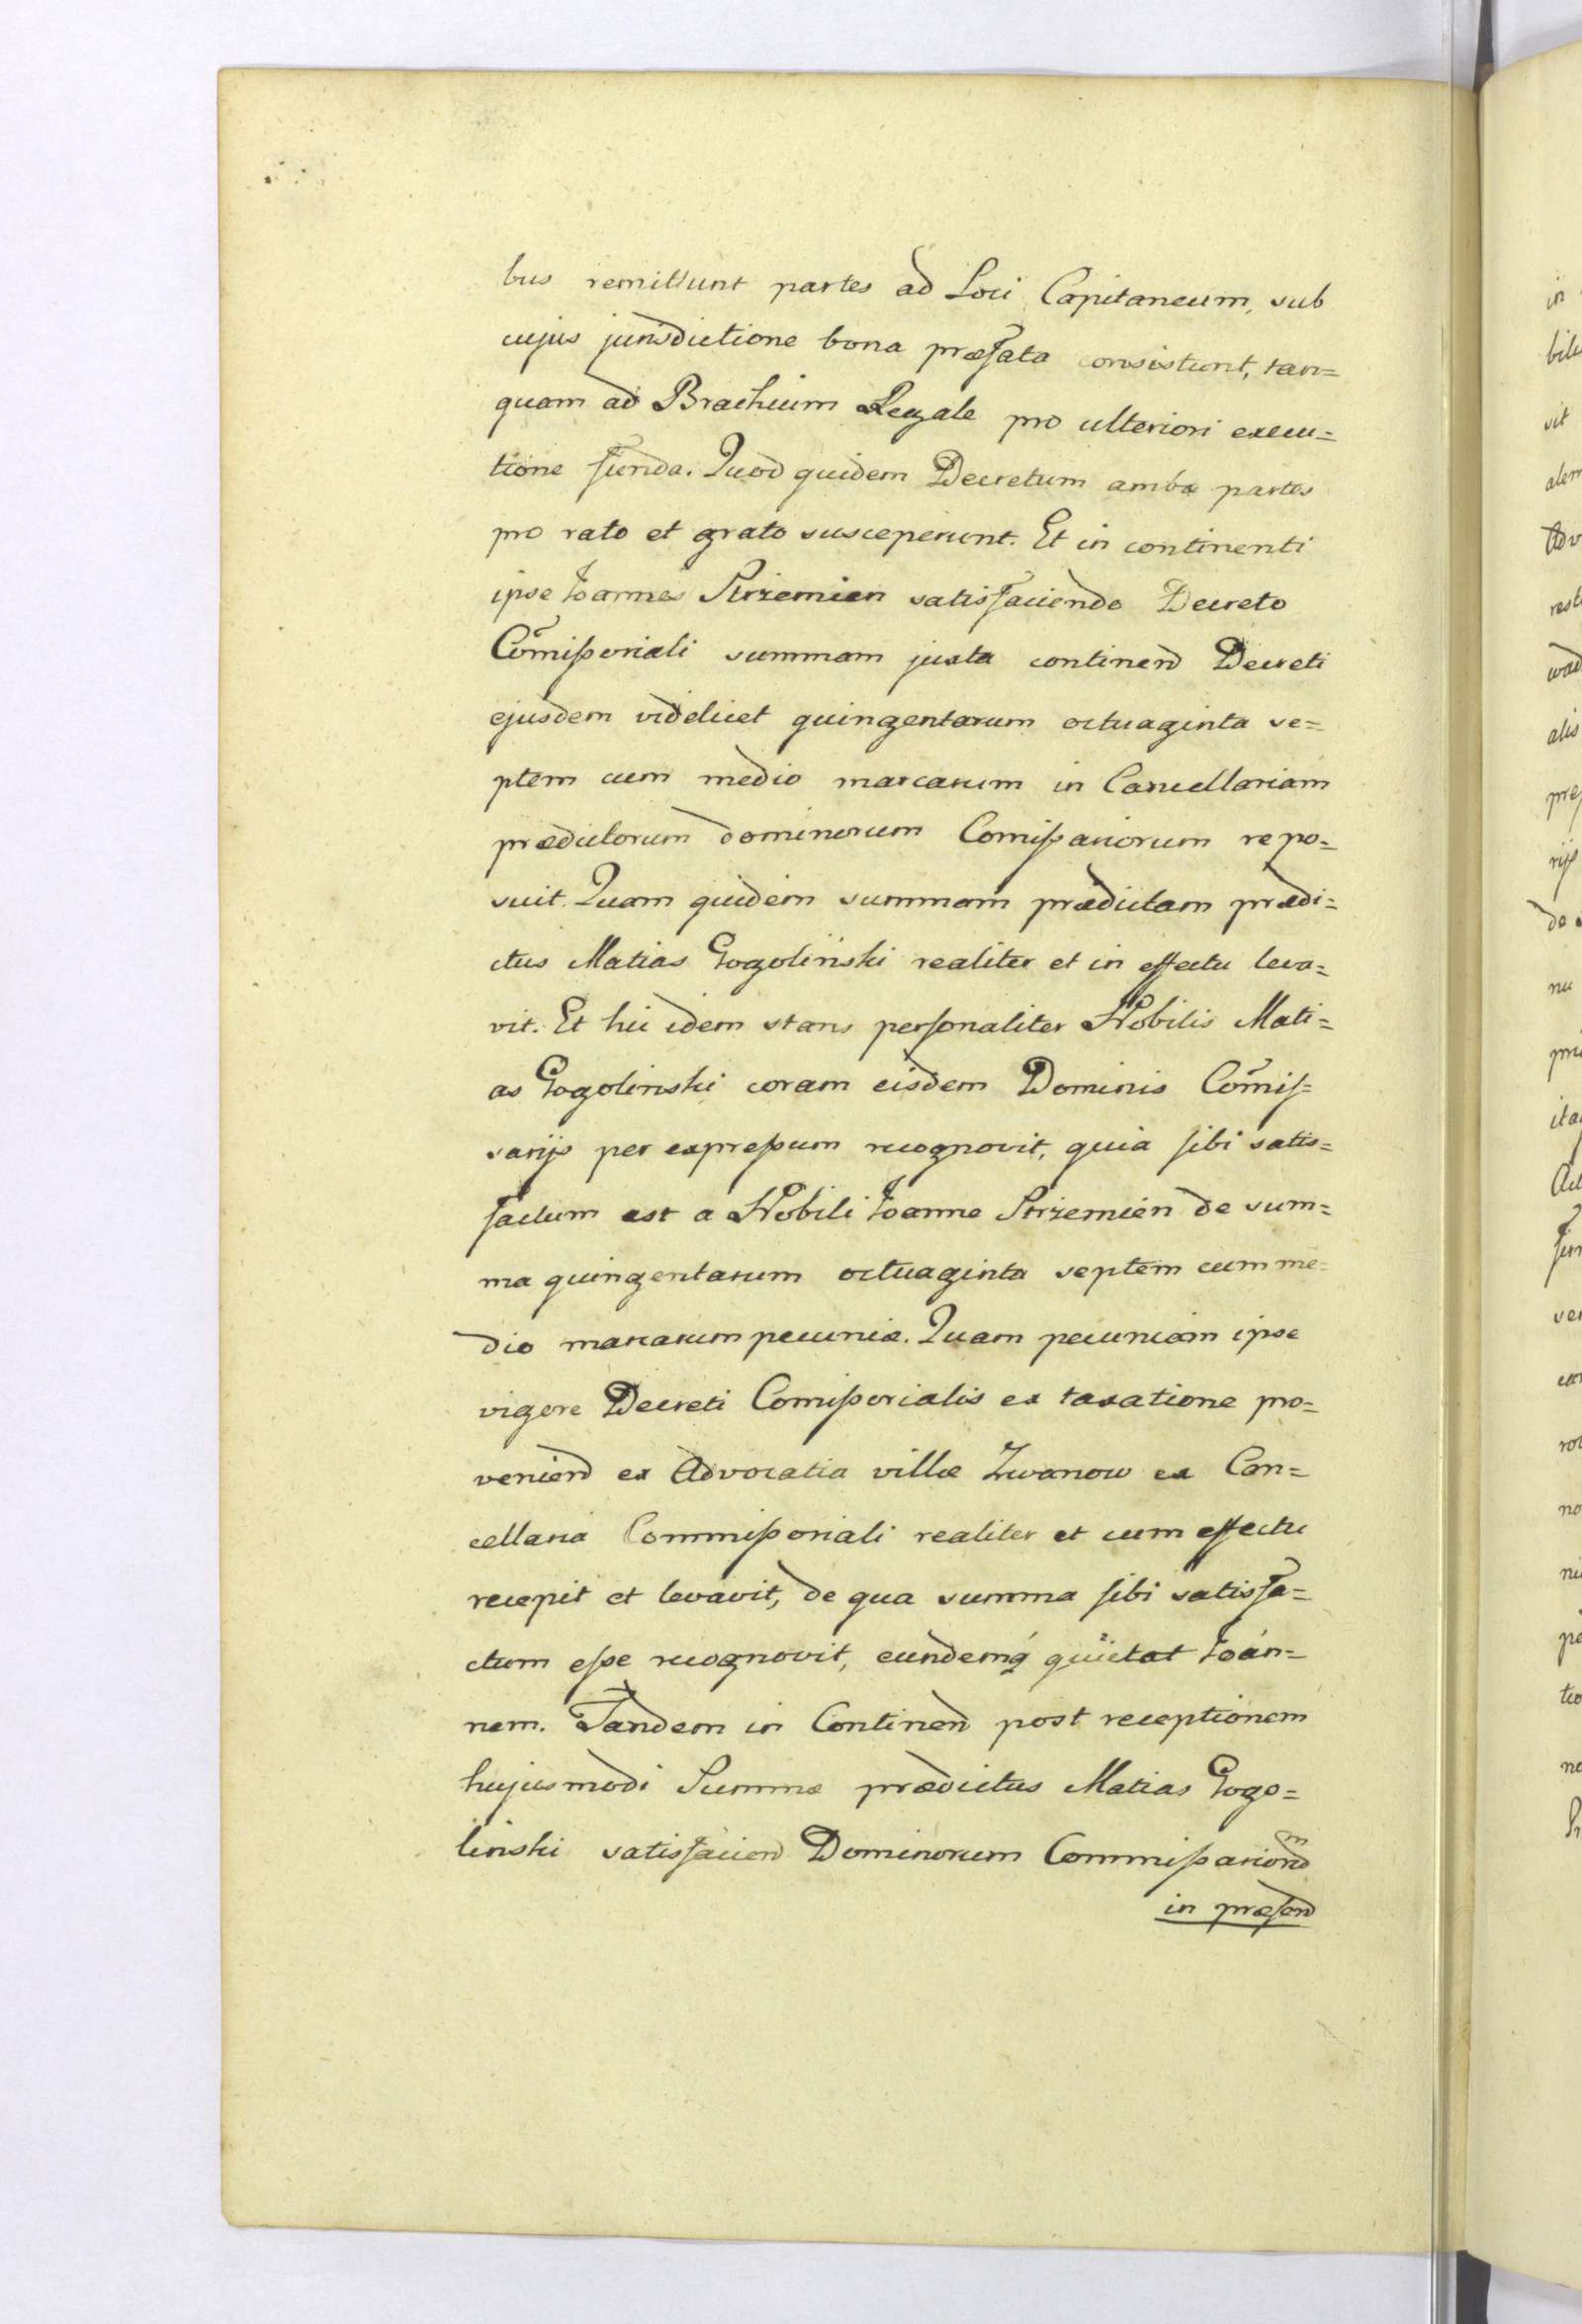 bus remittunt partes ad Loci Capitaneum, sub
cujus jurisdictione bona præfata consistunt, tan=
quam ad Brachium Regale pro ulteriori execu=
tione fienda. Quod quidem Decretum ambæ partes
pro rato et grato susceperunt. Et in continenti
ipse Joannes Strzemien satisfaciendo Decreto
Com̃ißoriali summam juxta continen̄ Decreti
ejusdem videlicet quingentarum octuaginta se=
ptem cum medio marcarum in Cancellariam
prædictorum dominorum Comißariorum repo=
suit. Quam quidem summam prædictam prædi=
ctus Matias Gogoliński realiter et in effectu leva=
vit. Et hic idem stans perſonaliter Nobilis Mati=
as Gogolinski coram eisdem Dominis Com̃iſ=
sarijs per expreßum recognovit, quia ſibi satis=
factum est a Nobili Joanne Strzemien de sum=
ma quingentarum octuaginta septem cum me=
dio marcarum pecuniæ. Quam pecuniam ipse
vigore Decreti Comißorialis ex taxatione pro=
venien̄ ex Advocatia villæ Zwanow ex Can=
cellaria Commißoriali realiter et cum effectu
recepit et levavit, de qua summa ſibi satisfa=
ctum eße recognovit, eundemq́ quietat Joán=
nem. Tandem in Continen̄ post receptionem
hujusmodi Summæ prædictus Matias Gogo=
linski satisfacien̄ Dominorum Commißario͞r͞m
in præſen̄